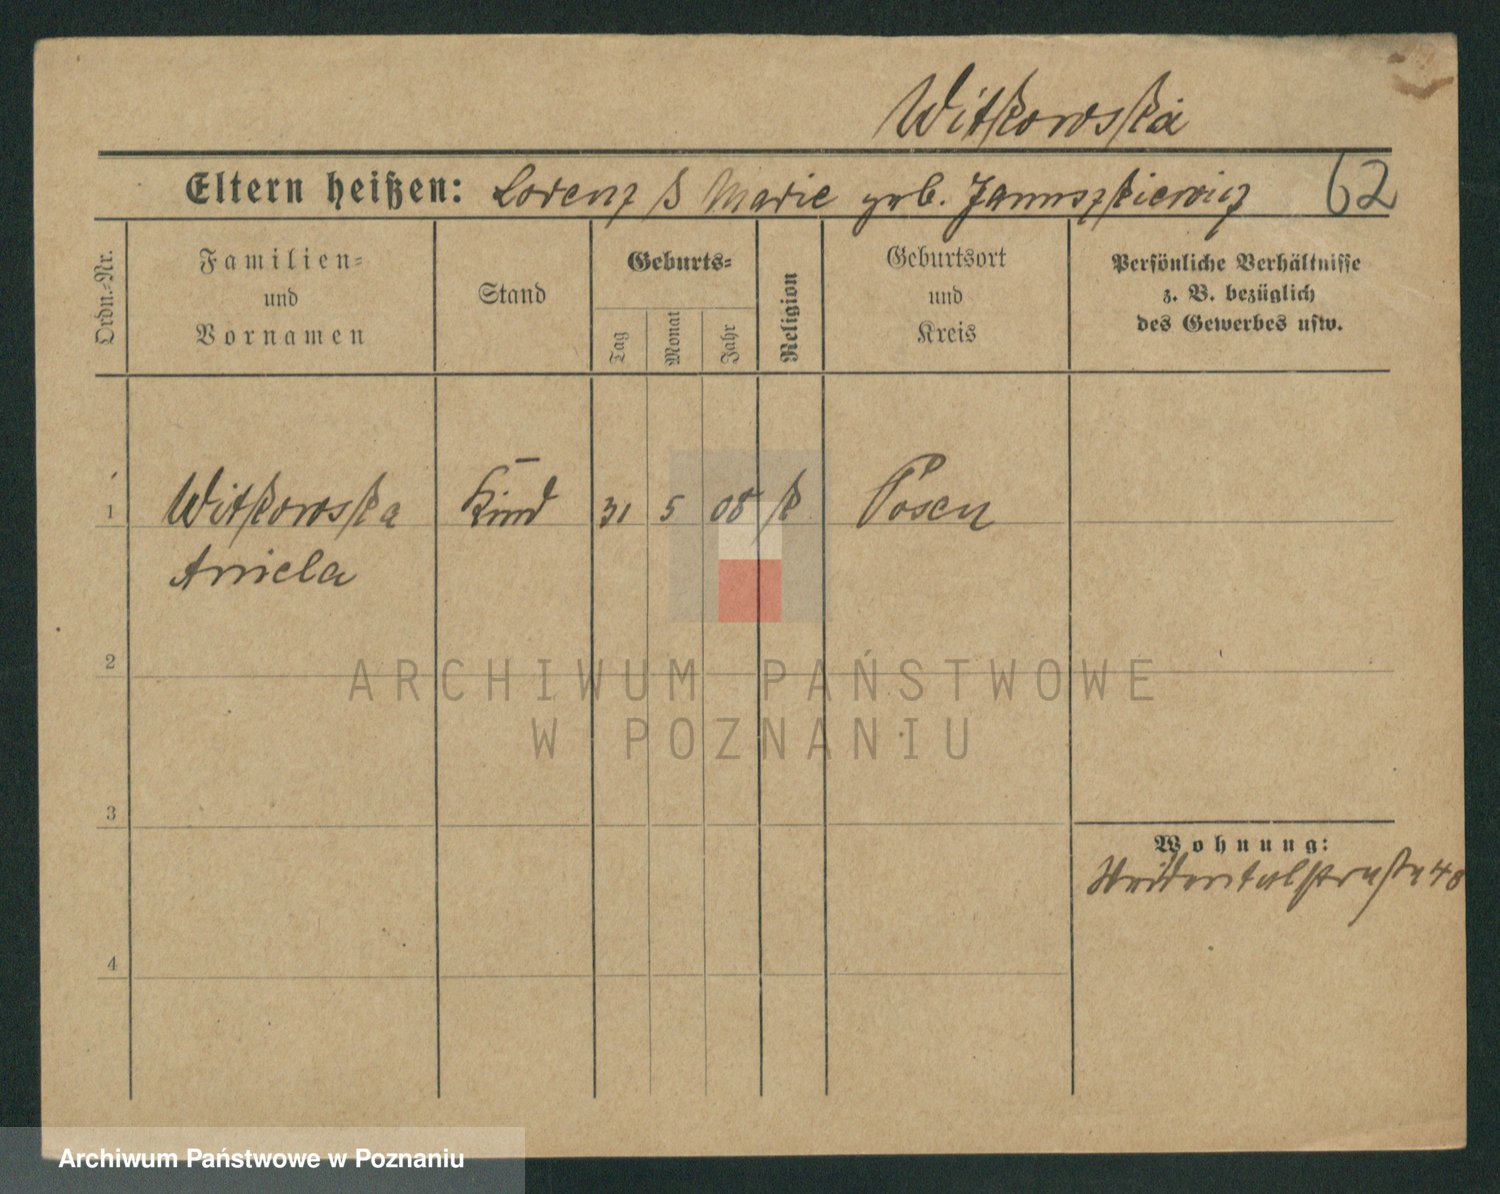 Witkowska
Eltern heißen: Lorenz & Marie geb. Januszkiewicz 62
Ordn.-Nr.
Familien-
und
Vornamen
Stand
Geburts-
Tag
Monat
Jahr
Religion
Geburtsort
und
Kreis
Persönliche Verhältnisse
z. B. bezüglich
des Gewerbes usw.
1 Witkowska Kind 31 5 08 k Posen
Aniela
2
ARCHIWUM PAŃSTWOWE
W POZNANIU
3
Wohnung:
48
4
Archiwum Państwowe w Poznaniu